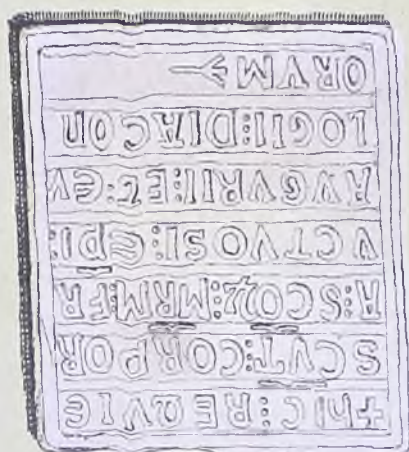 +hIC:REQVIE
SCVT:CORPOR
A:SCOꝜ:MRM:FR
VCTVOSI:EPI:
AVGVRII:ET:EV
LOGII:DIACON
ORVM